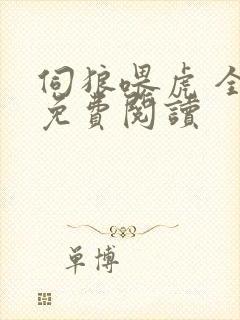 伺狼喂虎 全
免費閱讀
单博